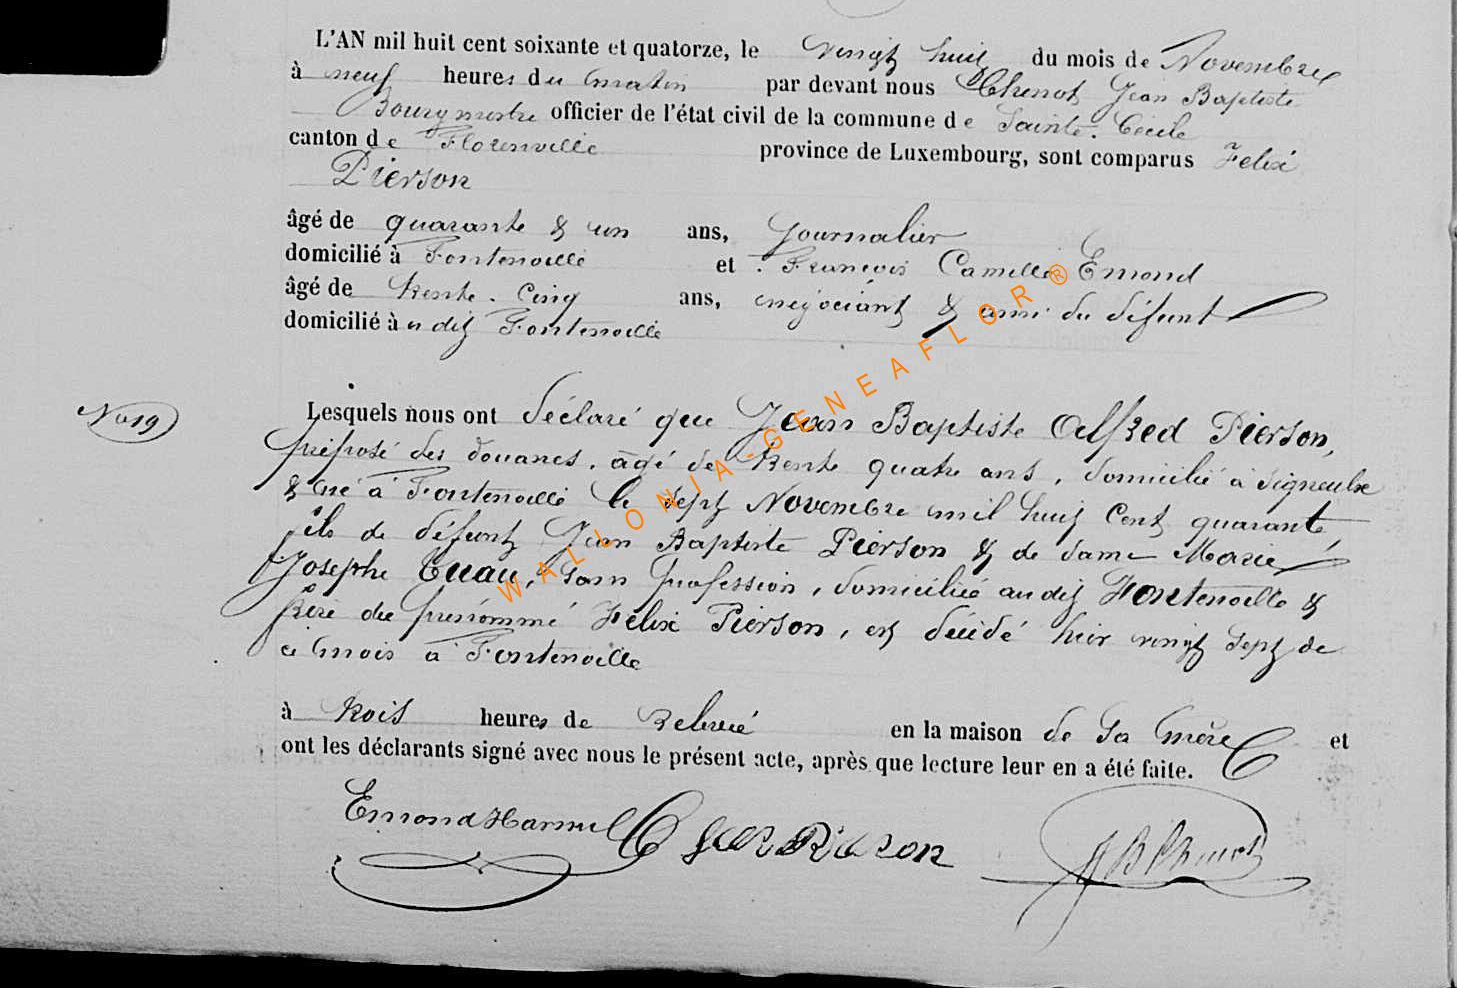 L'AN mil huit cent soixante et quatorze, le vingt huit du mois de Novembre
à neuf heures du matin par devant nous Chenot Jean Baptiste
Bourgmestre officier de l'état civil de la commune de Sainte-Cécile
canton de Florenville province de Luxembourg, sont comparus Felix
Pierson
âgé de quarante & un ans, Journalier
domicilié à Fontenoille et François Camille Emond
âgé de trente-cinq ans, negociant & ami du défunt
domicilié à u dit Fontenoille
No 19
Lesquels nous ont déclaré que Jean Baptiste Alfred Pierson,
préposé des douanes, âgé de trente quatre ans, domicilié à Signeulx
& né à Fontenoille le sept Novembre mil huit cent quarante,
fils de défunt Jean Baptiste Pierson & de dame Marie
Josephe Tuau, sans profession, domiciliée au dit Fontenoille &
frère du prénommé Felix Pierson, est décédé hier vingt sept de
ce mois à Fontenoille
à trois heures de relevée en la maison de sa mère et
ont les déclarants signé avec nous le présent acte, après que lecture leur en a été faite.
Emond Pierson JB Chenot
WALLONIA-GENEAFLOR®